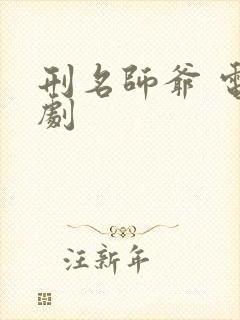 刑名師爺 電
劇
汪新年